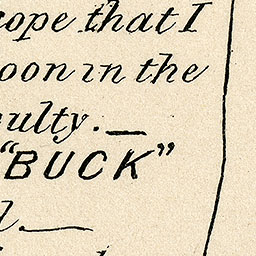 hope that I
oon in the
ulty. —
"BUCK"